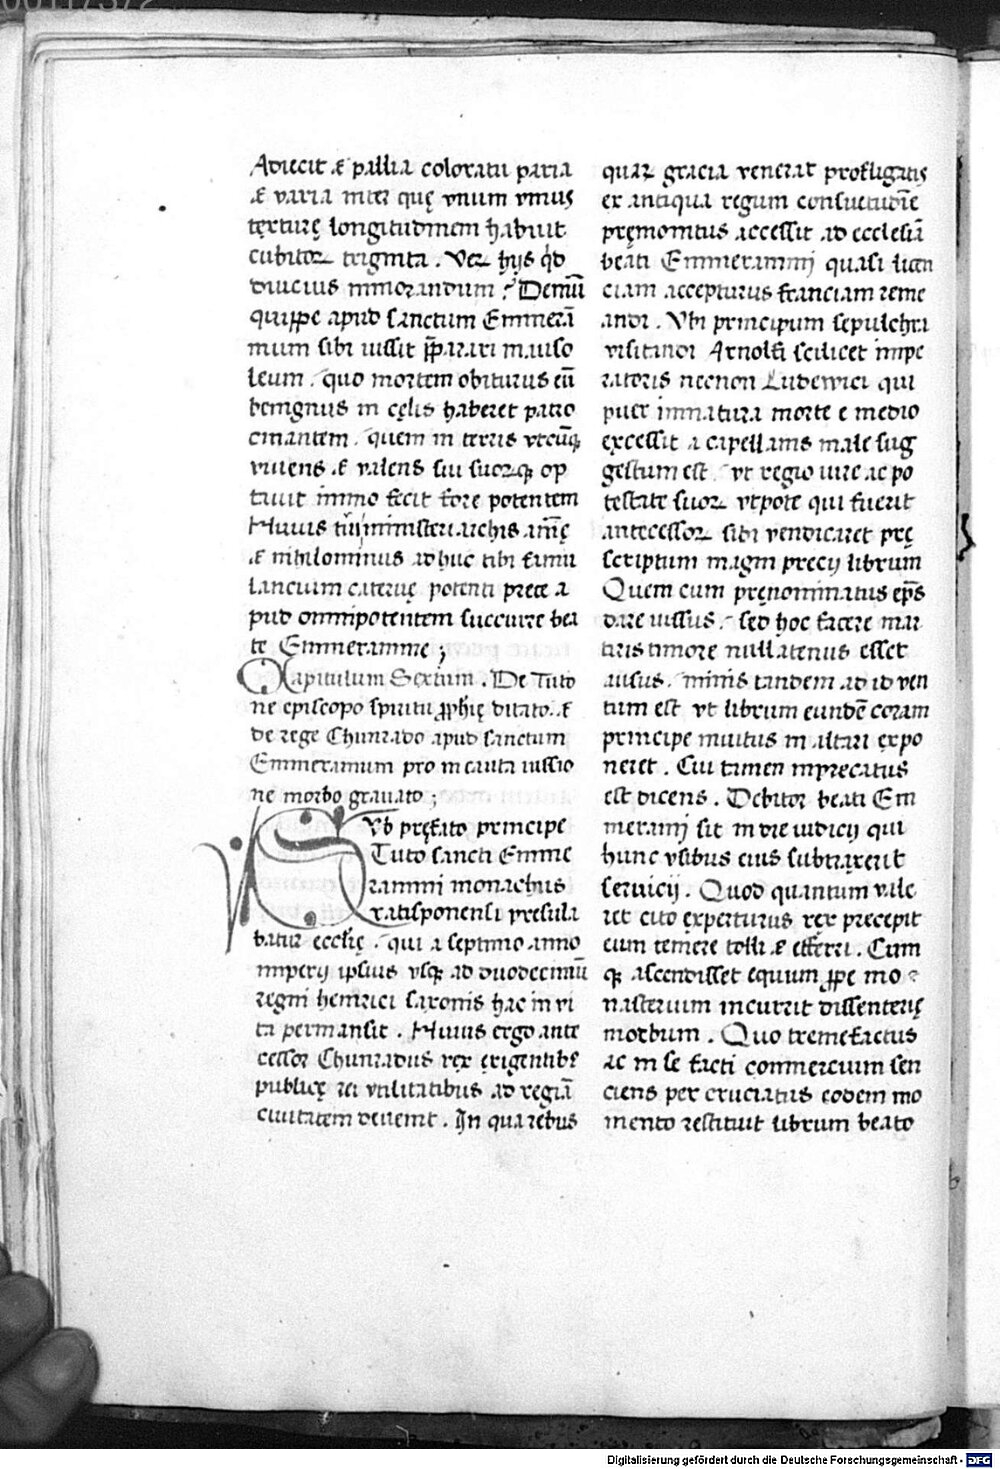 00117372
Adiecit & pallia coloratu paria
& varia inter quę vnum vnius
texturę longitudinem habuit
cubitoꝝ triginta . Veꝝ hijs qd̄
diucius inmorandum ? Demū
quippe apud sanctum Emmerā
mum sibi iussit p̄parari mauso
leum . quo mortem obiturus eū
benignus in cęlis haberet patro
cinantem . quem in terris vtcūqꝫ
viuens & valens sui suorqꝫ op
tauit immo fecit fore potentem
Huius ministeriarchis
& nihilominus adhuc tibi famu
lancium cateruę potenti prece a
pud omnipotentem succurre bea
te Emmeramme ;
Capitulum Sextum . De Tuto
ne episcopo spiritu ꝓphię ditato . &
de rege Chunrado apud sanctum
Emmeramum pro incauta iussio
ne morbo grauato ;
Svb pręfato principe
Tuto sancti Emme
rammi monachus
ratisponensi presula
batur eccl̄ię . qui a septimo anno
imperij ipsius vsqꝫ ad duodecimū
regni heinrici saxonis hac in vi
ta permansit . Huius ergo ante
cessor Chunradus rex exigentibꝫ
publicę rei vtilitatibus ad regiā
ciuitatem deuenit . In qua rebus
quaꝝ gracia venerat profligatis
ex antiqua regum consuetudīe
pręmonitus accessit ad ecclesiā
beati Emmerammj quasi licen
ciam accepturus franciam reme
andi . Vbi principum sepulchra
visitandi Arnolfi scilicet impe
ratoris necnon Ludewici qui
puer immatura morte e medio
excessit a capellanis male sug
gestum est . vt regio iure ac po
testate suoꝝ vtpote qui fuerit
antecessoꝝ sibi vendicaret prę
scriptum magni precij librum
Quem cum pręnominatus ep̄s
dare iussus . sed hoc facere mar
tiris timore nullatenus esset
ausus . minis tandem ad id ven
tum est vt librum eundē coram
principe inuitus in altari expo
neret . Cui tamen inprecatus
est dicens . Debitor beati Em
merammj sit in die iudicij qui
hunc vsibus eius subtraxerit
seruicij . Quod quantum vale
ret cito experturus rex precepit
eum temere tolli & efferri . Cum
qꝫ ascendisset equum ꝓpe mo
nasterium incurrit dissenterię
morbum . Quo tremefactus
ac in se facti commercium sen
ciens per cruciatus eodem mo
mento restituit librum beato
Digitalisierung gefördert durch die Deutsche Forschungsgemeinschaft - DFG